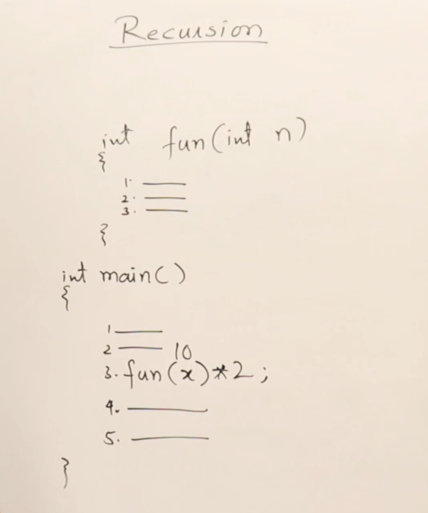 Recursion
int fun(int n)
{
1.
2.
3.
}
int main()
{
1
2 10
3. fun(x)*2;
4.
5.
}